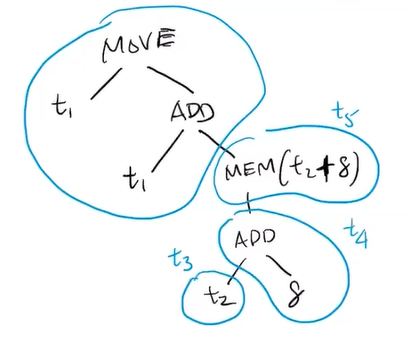 MOVE
t₁ ADD
t₅
t₁ MEM(t₂+8)
ADD t₄
t₃
t₂ 8